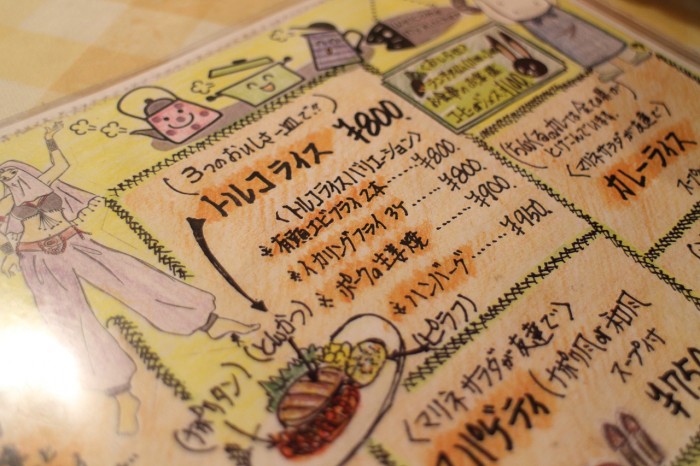 (3つのおいしさ一皿で!!)
トルコライス ¥800
〈トルコライスバリエーション〉
*有頭エビフライ2本 ¥800
*イカリングフライ3ケ ¥800
*ポークの生姜焼 ¥900
*ハンバーグ ¥950
(とんかつ)
(ピラフ)
(ナポリタン)
お食事のお客様
コーヒー
100
〈マリネサラダが友達で〉
カレーライス
〈マリネサラダが友達で〉
スパゲティ(ナポリ風or和風)
スープ付
¥750